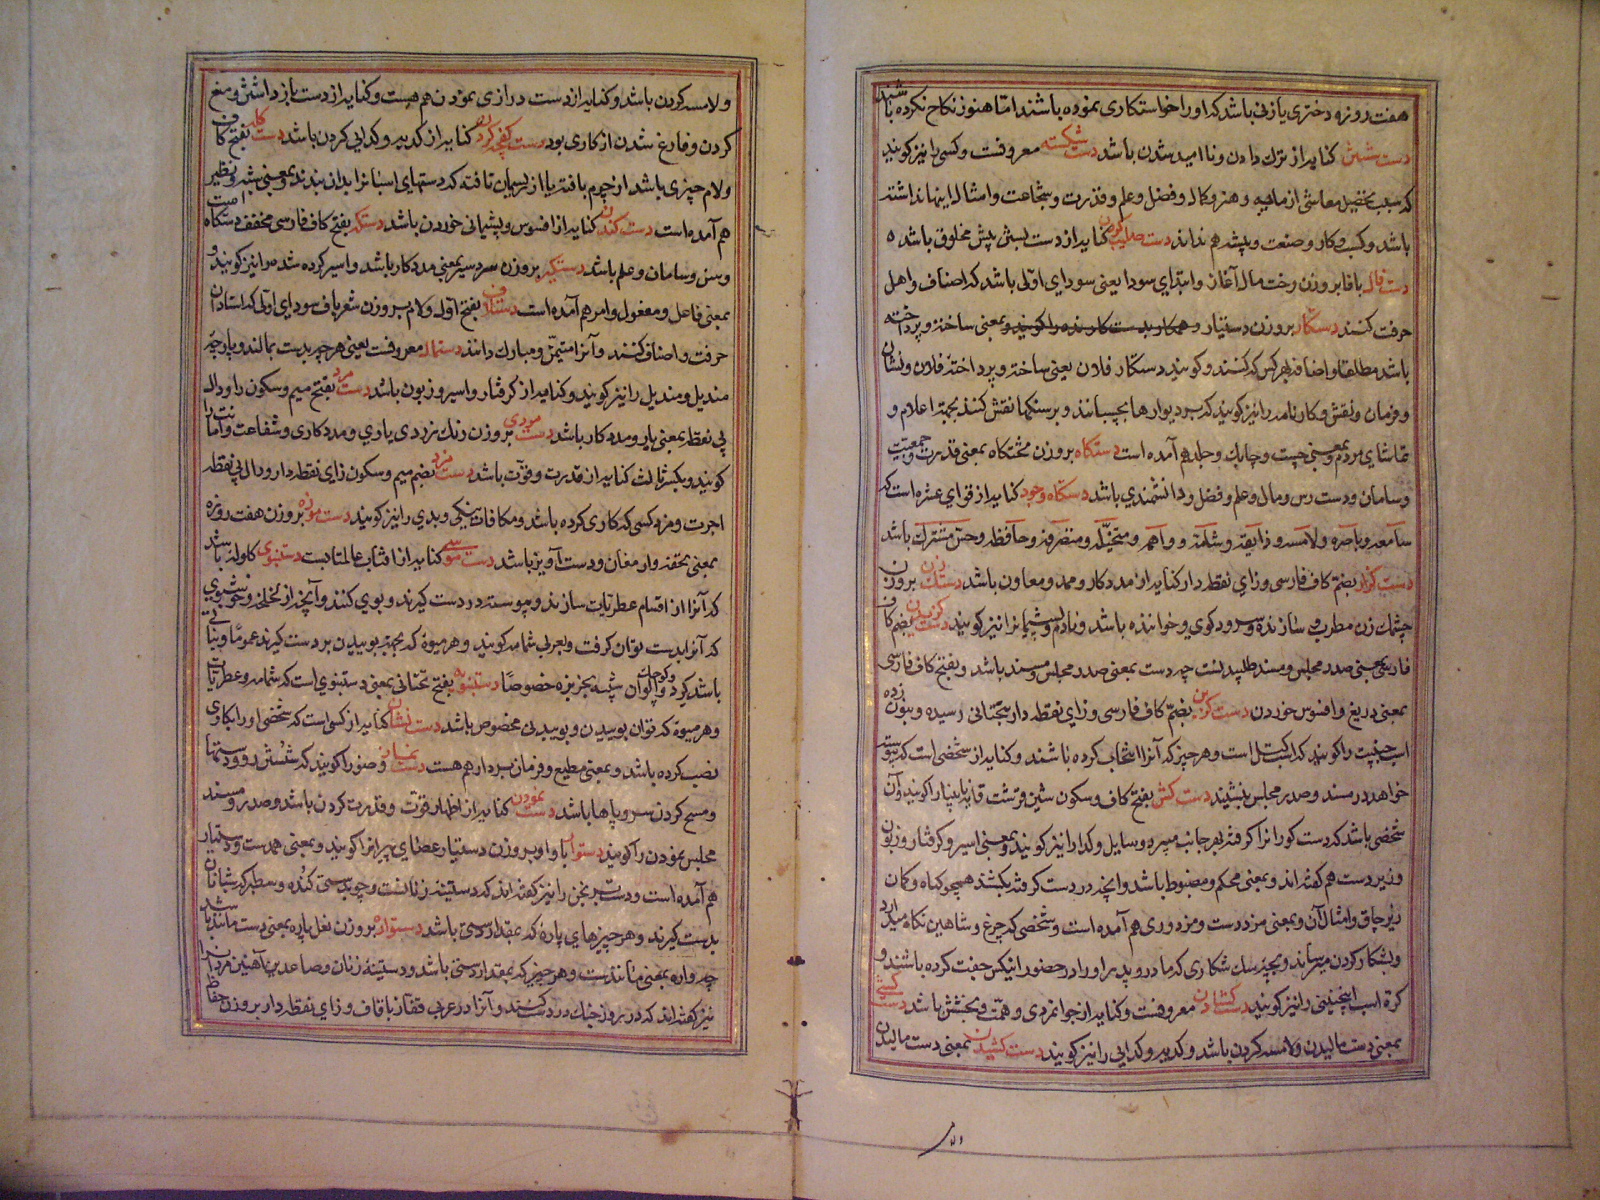 هفت روزه و دختری یا زنی باشد که او را خواستکاری نموده باشند اما هنوز نکاح نکرده باشند
دست شستن کنایه از ترک دادن و ناامید شدن باشد دست شکسته معروفست و کسی را نیز کویند
که سبب تحصیل معاشی از ماهیه و هنر و کمال و فضل و علم و قدرت و شجاعت و امثال اینها نداشته
باشد و کسب و کار و صنعت و پیشه هم نداند دست صلیب کردن کنایه از دست بستن پیش مخلوق باشد
دست فال با فا بر وزن رخت مال آغاز و ابتدای سودا یعنی سودای اولی باشد که اصناف و اهل
حرفت کنند دستکار بر وزن دستیار و همکار بدست کارنده را کویند و بمعنی ساخته و پرداخته
باشد مطلقا و اضافه بهر کس که کنند و کویند دستکار فلان یعنی ساخته و پرداخته فلان و نشان
و فرمان و نقش و کارنامه را نیز کویند که بر دیوارها بچسبانند و بر سنکها نقش کنند بجهة اعلام و
تماشای مردم و بمعنی چست و چابک و جلد هم آمده است دستکاه بر وزن تختکاه بمعنی قدرت و جمعیت
و سامان و دست رس و مال و علم و فضل و دانشمندی باشد دستکاه وجود کنایه از قوای عشره است که
سامعه و باصره و لامسه و ذایقه و شامه و واهمه و متخیله و متصرفه و حافظه و حس مشترک باشد
دست کزار بضم کاف فارسی و زای نقطه دار کنایه از مددکار و ممد و معاون باشد دستک زن بر وزن
چشمک زن مطرب و سازنده و سرود کوی و خواننده باشد و نادم و پشیمانرا نیز کویند دست کزیدن بضم کاف
فارسی بمعنی صدر مجلس و مسند طلبیدنست چه دست بمعنی صدر مجلس و مسند باشد و بفتح کاف فارسی
بمعنی دریغ و افسوس خوردن دست کزین بضم کاف فارسی و زای نقطه دار بتحتانی رسیده و بنون زده
اسب جنیبت را کویند که اسب کتل است و هر چیز که آنرا انتخاب کرده باشند و کنایه از شخصی است که پیوسته
خواهد در مسند و صدر مجلس بنشیند دست کش بفتح کاف و سکون شین قرشت قاید نابینا را کویند و آن
شخصی باشد که دست کورانرا کرفته بهر جانب میبرد و سایل و کدا را نیز کویند و بمعنی اسیر و کرفتار و زبون
و زیردست هم کفته اند و بمعنی محکم و مضبوط باشد و آنچه در دست کرفته بکشند همچو کباده و کمان
زیرچاق و امثال آن و بمعنی مزد دست و مزدوری هم آمده است و شخصی که چرغ و شاهین نکاه میدارد
و بشکار کردن میرساند و بچه سک شکاری که مادر و پدر او را در حضور آنکس جفت کرده باشند و
کره اسب اینچنینی را نیز کویند دست کشادن معروفست و کنایه از جوانمردی و همت و بخشش باشد دست کشی
بمعنی دست مالیدن و لامسه کردن باشد و کدیه و کدایی را نیز کویند دست کشیدن بمعنی دست مالیدن
و لامسه کردن باشد و کنایه از دست درازی نمودن هم هست و کنایه از دست باز داشتن و منع
کردن و فارغ شدن از کاری بود دست کفچه کردن کنایه از کدیه و کدایی کردن باشد دست کله بفتح کاف
و لام چیزی باشد از چرم بافته یا از ریسمان تافته که دستهای اسبانرا بدان بندند و بمعنی شبه و نظیر
هم آمده است دست کندن کنایه از افسوس و پشیمانی خوردن باشد دستکه بفتح کاف فارسی مخفف دستکاه است
و سر و سامان و علم باشد دستکیر بر وزن سردسیر بمعنی مددکار باشد و اسیر کرده شده را نیز کویند و
بمعنی فاعل و مفعول و امر هم آمده است دستلاف بفتح اول و لام بر وزن شعرباف سودای اولی که استادان
حرفت و اصناف کنند و آنرا متیمن و مبارک دانند دستمال معروفست یعنی هر چه بدست بمالند و پارچه
مندیل و مندیل را نیز کویند و کنایه از کرفتار و اسیر و زبون باشد دست مرد بفتح میم و سکون را و دال
بی نقطه بمعنی یار و مددکار باشد دست مردی بر وزن دنک نزدی یاری و مددکاری و شفاعت و امانت را
کویند و بکسر ثالث کنایه از قدرت و قوت باشد دست مزد بضم میم و سکون زای نقطه دار و دال بی نقطه
اجرت و مزد کسی که کاری کرده باشد و مکافات نیکی و بدی را نیز کویند دست موزه بر وزن هفت روزه
بمعنی تحفه و ارمغان و دست آویز باشد دست موسی کنایه از آفتاب عالمتابست دستنبوی کلوله باشد
که آنرا از اقسام عطریات سازند و پیوسته در دست کیرند و بوی کنند و آنچه از لخلخه و خوشبوی
که آنرا بدست توان کرفت و بعربی شمامه کویند و هر میوه که بجهة بوییدن بر دست کیرند عموما و نباتی
باشد کرد و کوچک و الوان شبیه بخربزه خصوصا دستنبویه بفتح تحتانی بمعنی دستنبوی است که شمامه و عطریات
و هر میوه که توان بوییدن و بوییدنی مخصوص باشد دست نشان کنایه از کسی است که شخصی او را بکاری
نصب کرده باشد و بمعنی مطیع و فرمان بردار هم هست دست نماز وضو را کویند که شستن رو و دستها
و مسح کردن سر و پاها باشد دست نمودن کنایه از اظهار قوت و قدرت کردن باشد و صدر و مسند
مجلس نمودن را کویند دستوار با واو بر وزن دستیار عطای پیرانرا کویند و بمعنی همدست و دستیار
هم آمده است و دست برنجن را نیز کفته اند که دستینه زنانست و چوبدستی کنده و سطبر که شبانان
بدست کیرند و هر چیزهای پاره که بمقدار دستی باشد دستواره بر وزن نعل پاره بمعنی دست مانند باشد
چه واره بمعنی مانندست و هر چیز که بمقدار دستی باشد و دستینه زنان و ساعدبند آهنین مردانرا
نیز کفته اند که در روز جنک در دست کنند و آنرا در عربی قفاز با قاف و زای نقطه دار بر وزن حفاظ